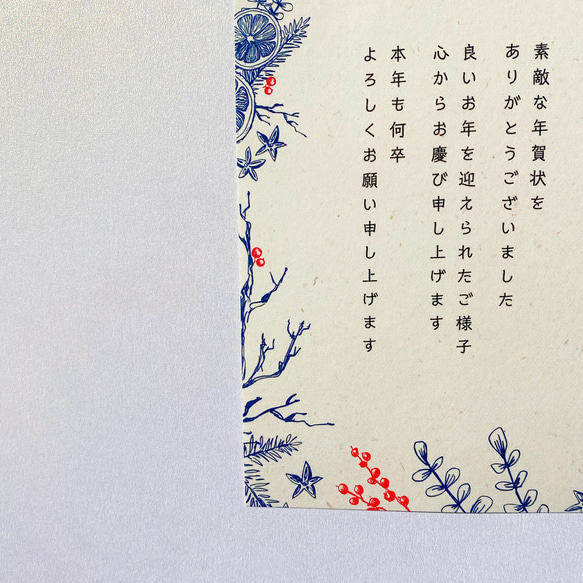 素敵な年賀状を
ありがとうございました
良いお年を迎えられたご様子
心からお慶び申し上げます
本年も何卒
よろしくお願い申し上げます